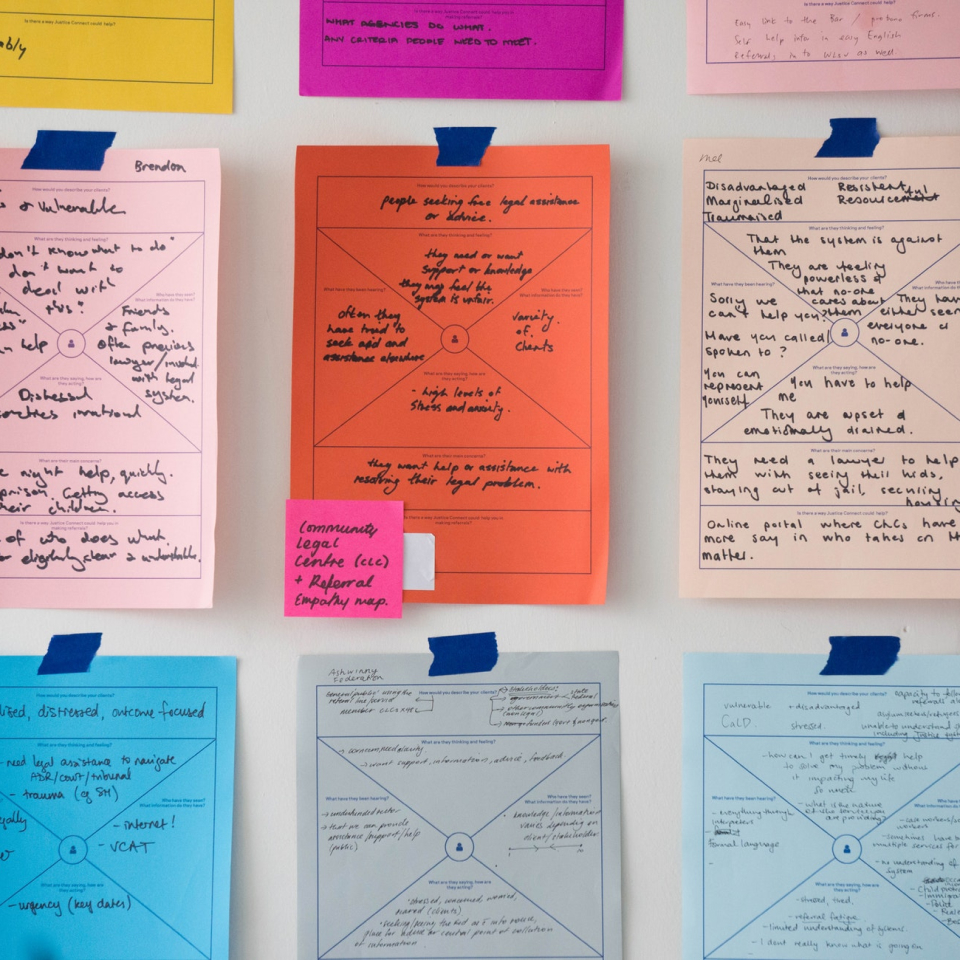 ably
Is there a way Justice Connect could help you in
making referrals?
WHAT AGENCIES DO WHAT.
ANY CRITERIA PEOPLE NEED TO MEET.
Is there a way Justice Connect could help?
Easy link to the Bar / probono firms.
Self help info in easy English
Referral, in to WLSV as well
Brendon
How would you describe your clients?
or vulnerable
What are they thinking and feeling?
don't know what to do"
don't want to
deal with
this."
Who have they seen?
What information do they have?
Friends
& family.
often previous
lawyer/involved
with legal
system.
help
What are they saying, how are
they acting?
Distressed
sometimes irrational
What are their main concerns?
might help, quickly.
Getting access
their children.
Is there a way Justice Connect could help you in
making referrals?
of who does what.
or eligibility clear & understandable.
How would you describe your clients?
people seeking free legal assistance
or advice.
What are they thinking and feeling?
they need or want
support or knowledge
they may feel the
system is unfair.
What have they been hearing?
often they
have tried to
seek aid and
assistance elsewhere
Who have they seen?
What information do they have?
variety
of
clients
What are they saying, how are
they acting?
- high levels of
stress and anxiety.
What are their main concerns?
they want help or assistance with
resolving their legal problem.
Is there a way Justice Connect could help you in
making referrals?
Community
Legal
Centre (CLC)
+ Referral
Empathy map.
Mel
How would you describe your clients?
Disadvantaged Resistent
Marginalised Resourceful
Traumatised
What are they thinking and feeling?
That the system is against
them
They are feeling
powerless &
that no-one
cares about
them
What have they been hearing?
Sorry we
can't help you?
Have you called/
spoken to ?
You can
represent
yourself
Who have they
What information do they
They have
either seen
everyone or
no-one.
What are they saying, how are
they acting?
You have to help
me
They are upset &
emotionally drained.
What are their main concerns?
They need a lawyer to help
them with seeing their kids,
staying out of jail, securing
housing
Is there a way Justice Connect could help?
Online portal where CLCs have
more say in who takes on
matter.
How would you describe your clients?
distressed, outcome-focused
What are they thinking and feeling?
- need legal assistance to navigate
ADR/court/tribunal
- trauma (eg SM)
Who have they seen?
What information do they have?
- internet!
- VCAT
What are they saying, how are
they acting?
- urgency (key dates)
Ashwinny
Federation
How would you describe your clients?
General public using the
referral line/portal
member CLCs & ALC
Stakeholders:
government
State
Federal
other community organisations
What are they thinking and feeling?
→ want support, information, advice, feedback
What have they been hearing?
→ that we can provide
assistance/support/help
(public)
Who have they seen?
What information do they have?
knowledge/information
varies depending on
client/stakeholder
What are they saying, how are
they acting?
stressed, concerned, worried,
(clients)
place for advice or central point of collation
of information
How would you describe your clients?
vulnerable + disadvantaged
CaLD stressed.
capacity to follow
referrals
asylum seekers/refugees
unable to understand
including justice system
What are they thinking and feeling?
- how can I get timely help
to solve my problem without
it impacting my life
so much
- what is the nature
of the services you
are providing?
What have they been hearing?
- everything through
interpreters
- formal language
Who have they seen?
What information do they have?
- case workers/
workers
- sometimes have
multiple services for
- no understanding of
system
- Child
- Immigration
What are they saying, how are
they acting?
- stressed, tired,
- referral fatigue.
- limited understanding of systems.
- I don't really know what is going on